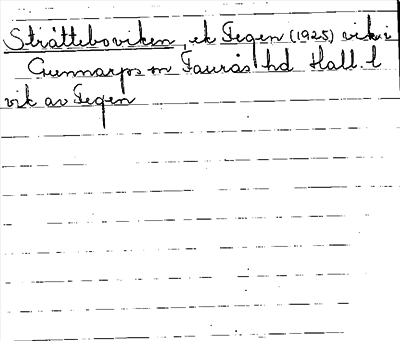 Stråtteboviken, ek Fegen (1925) vik i
Gunnarps sn Faurås hd Hall. l
vik av Fegen